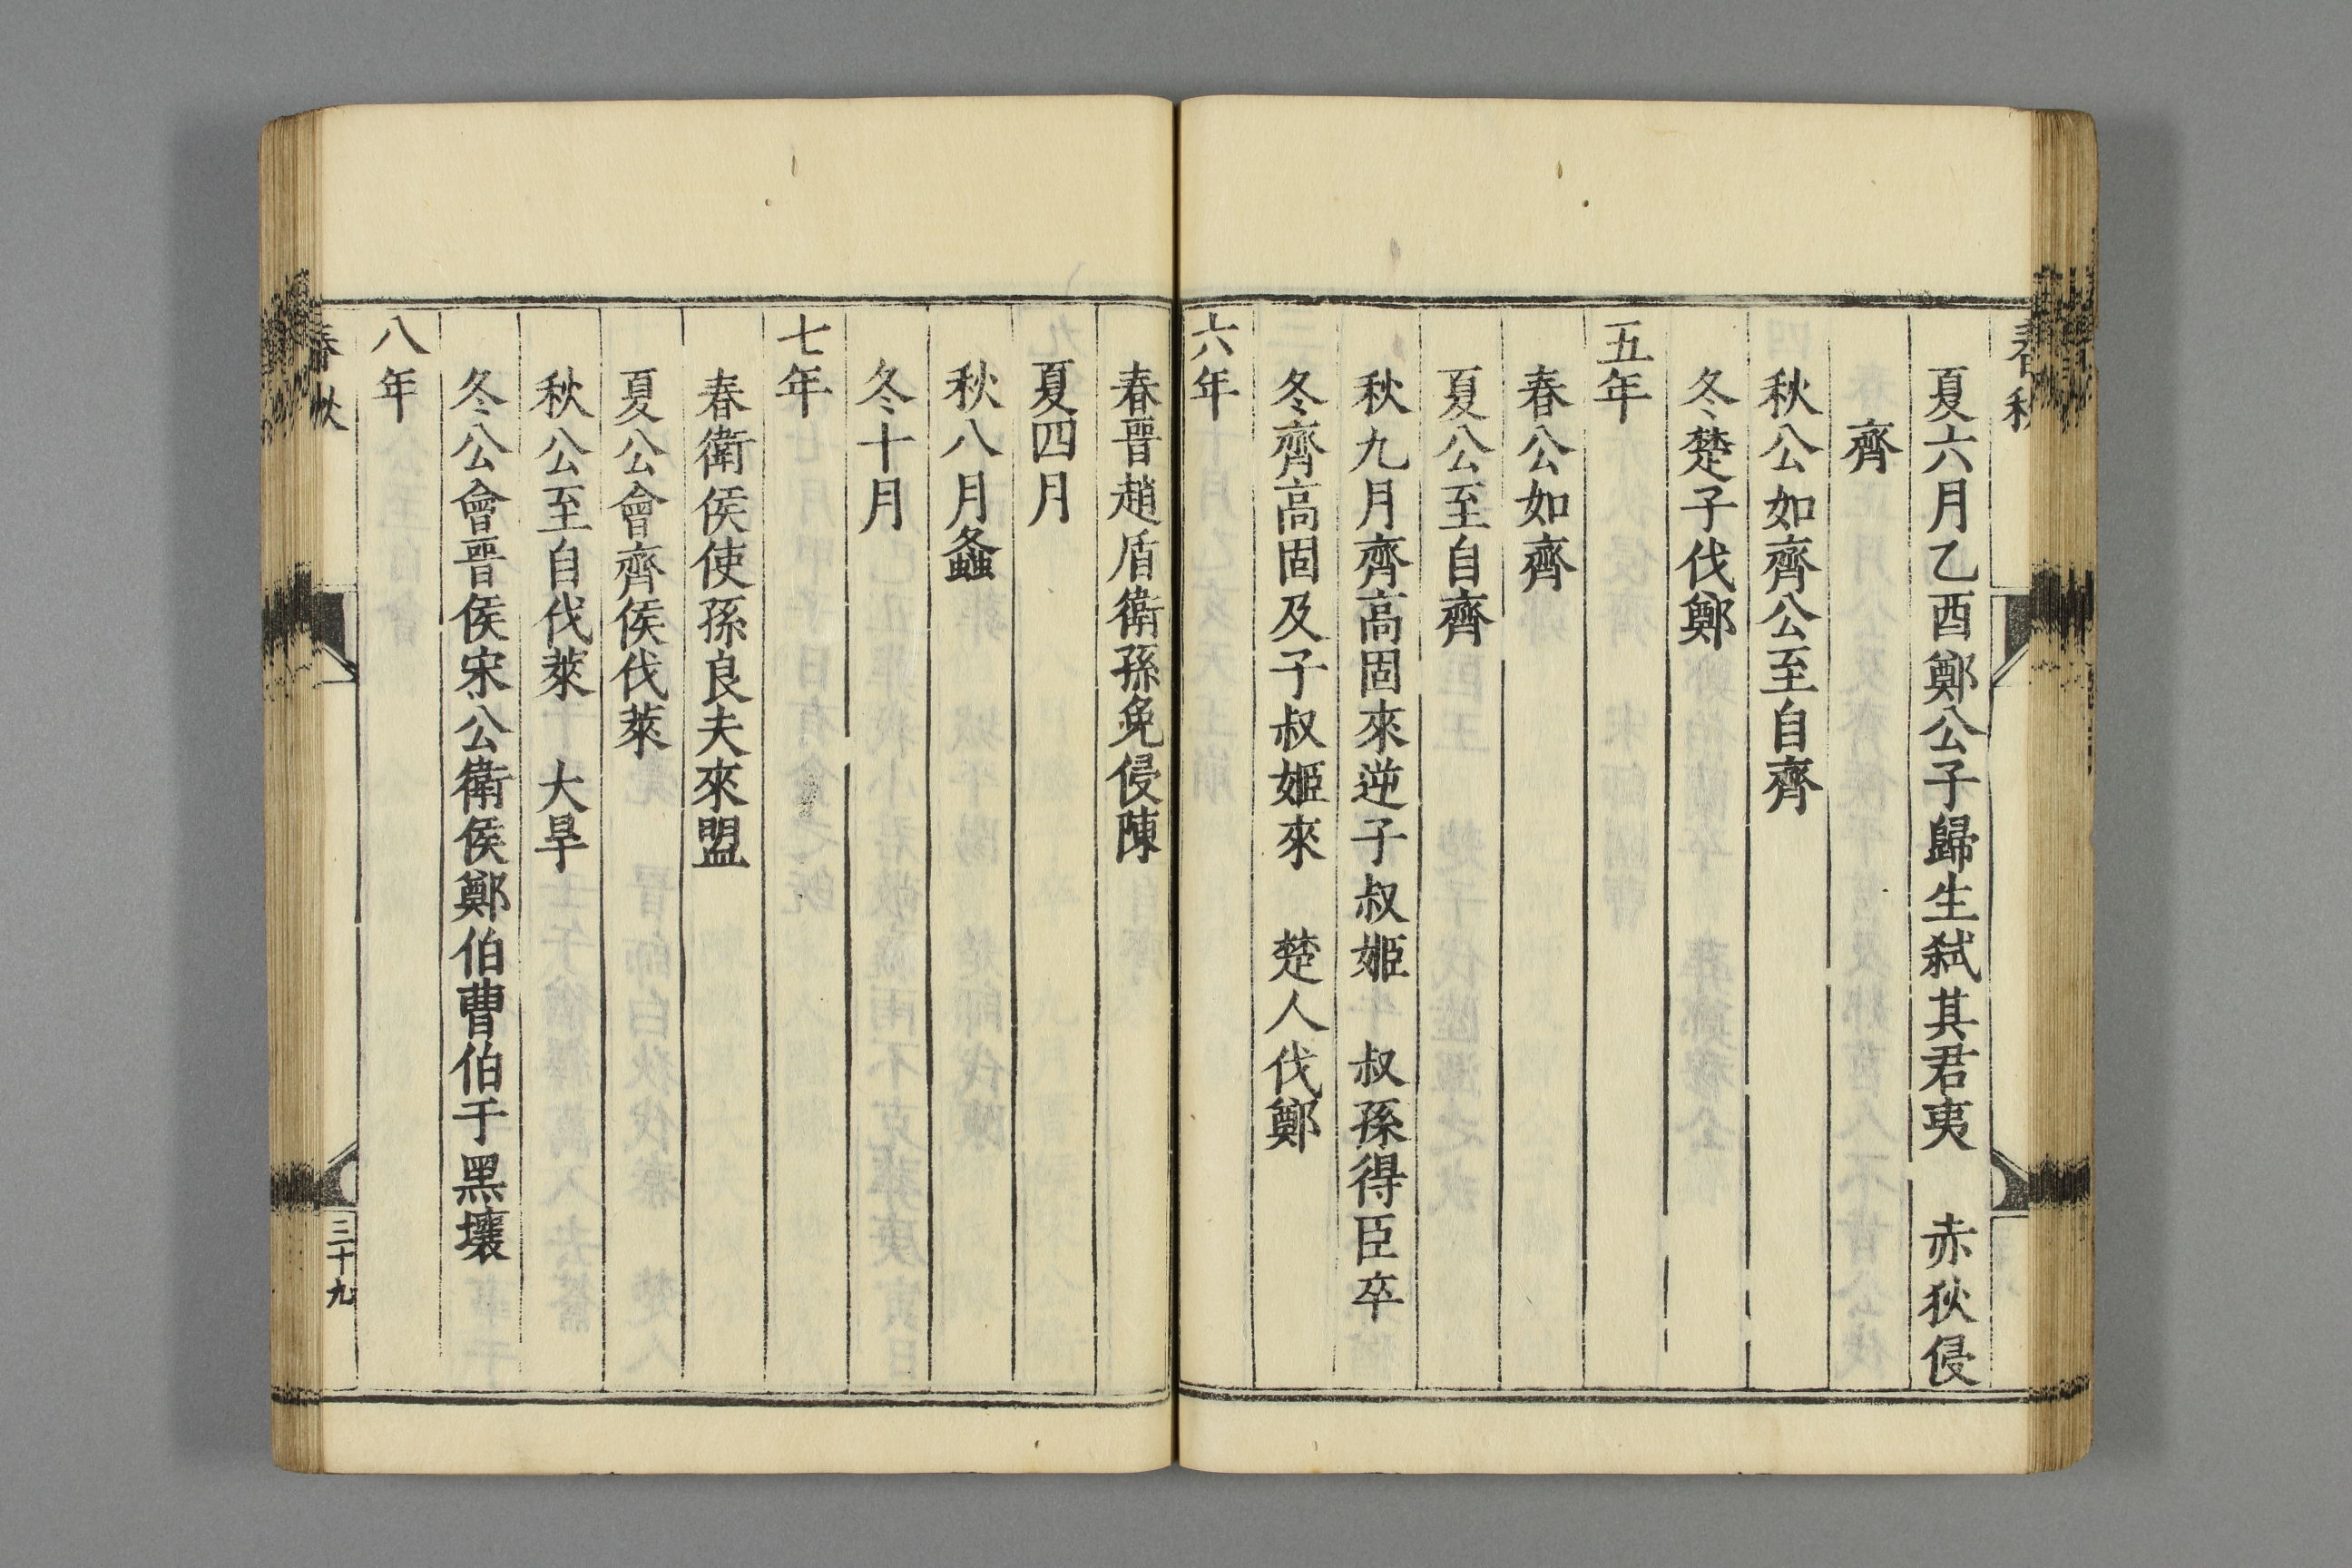 夏六月乙酉鄭公子歸生弒其君夷　赤狄侵
齊
秋公如齊公至自齊
冬楚子伐鄭
五年
春公如齊
夏公至自齊
秋九月齊高固來逆子叔姬　叔孫得臣卒
冬齊高固及子叔姬來　楚人伐鄭
六年
春晉趙盾衛孫免侵陳
夏四月
秋八月螽
冬十月
七年
春衛侯使孫良夫來盟
夏公會齊侯伐萊
秋公至自伐萊　大旱
冬公會晉侯宋公衛侯鄭伯曹伯于黑壤
八年
春秋
三十九